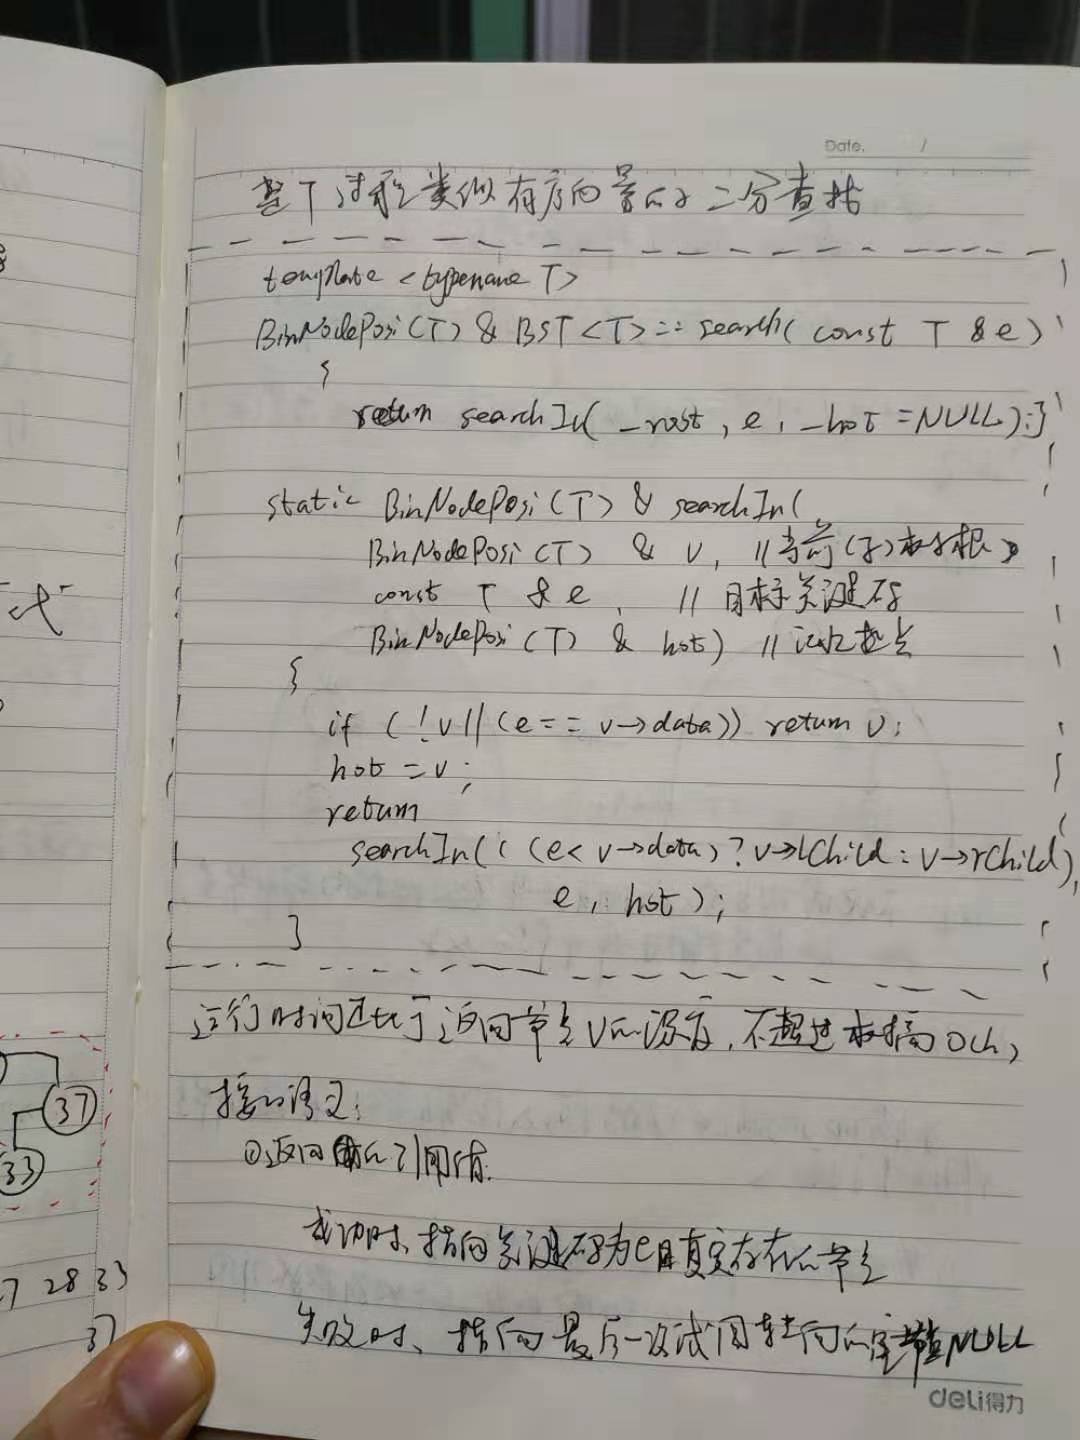 Date. /
整个过程类似有序向量的二分查找
template <typename T>
BinNodePosi(T) & BST <T>:: search( const T & e)
{
return searchIn( _root, e, _hot = NULL);}
static BinNodePosi(T) & searchIn(
BinNodePosi(T) & v, //当前(子)树根
const T & e, // 目标关键码
BinNodePosi(T) & hot) // 记忆热点
{
if (!v || (e == v->data)) return v;
hot = v;
return
searchIn( ( (e< v->data) ? v->lChild : v->rChild),
e, hot);
}
运行时间正比于返回节点v的深度,不超过树高O(h)
接口语义:
①返回的引用值.
成功时、指向关键码为e且真实存在的节点
失败时、指向最后一次试图转向的空节点NULL
37
33
7 28 33
37
deli得力